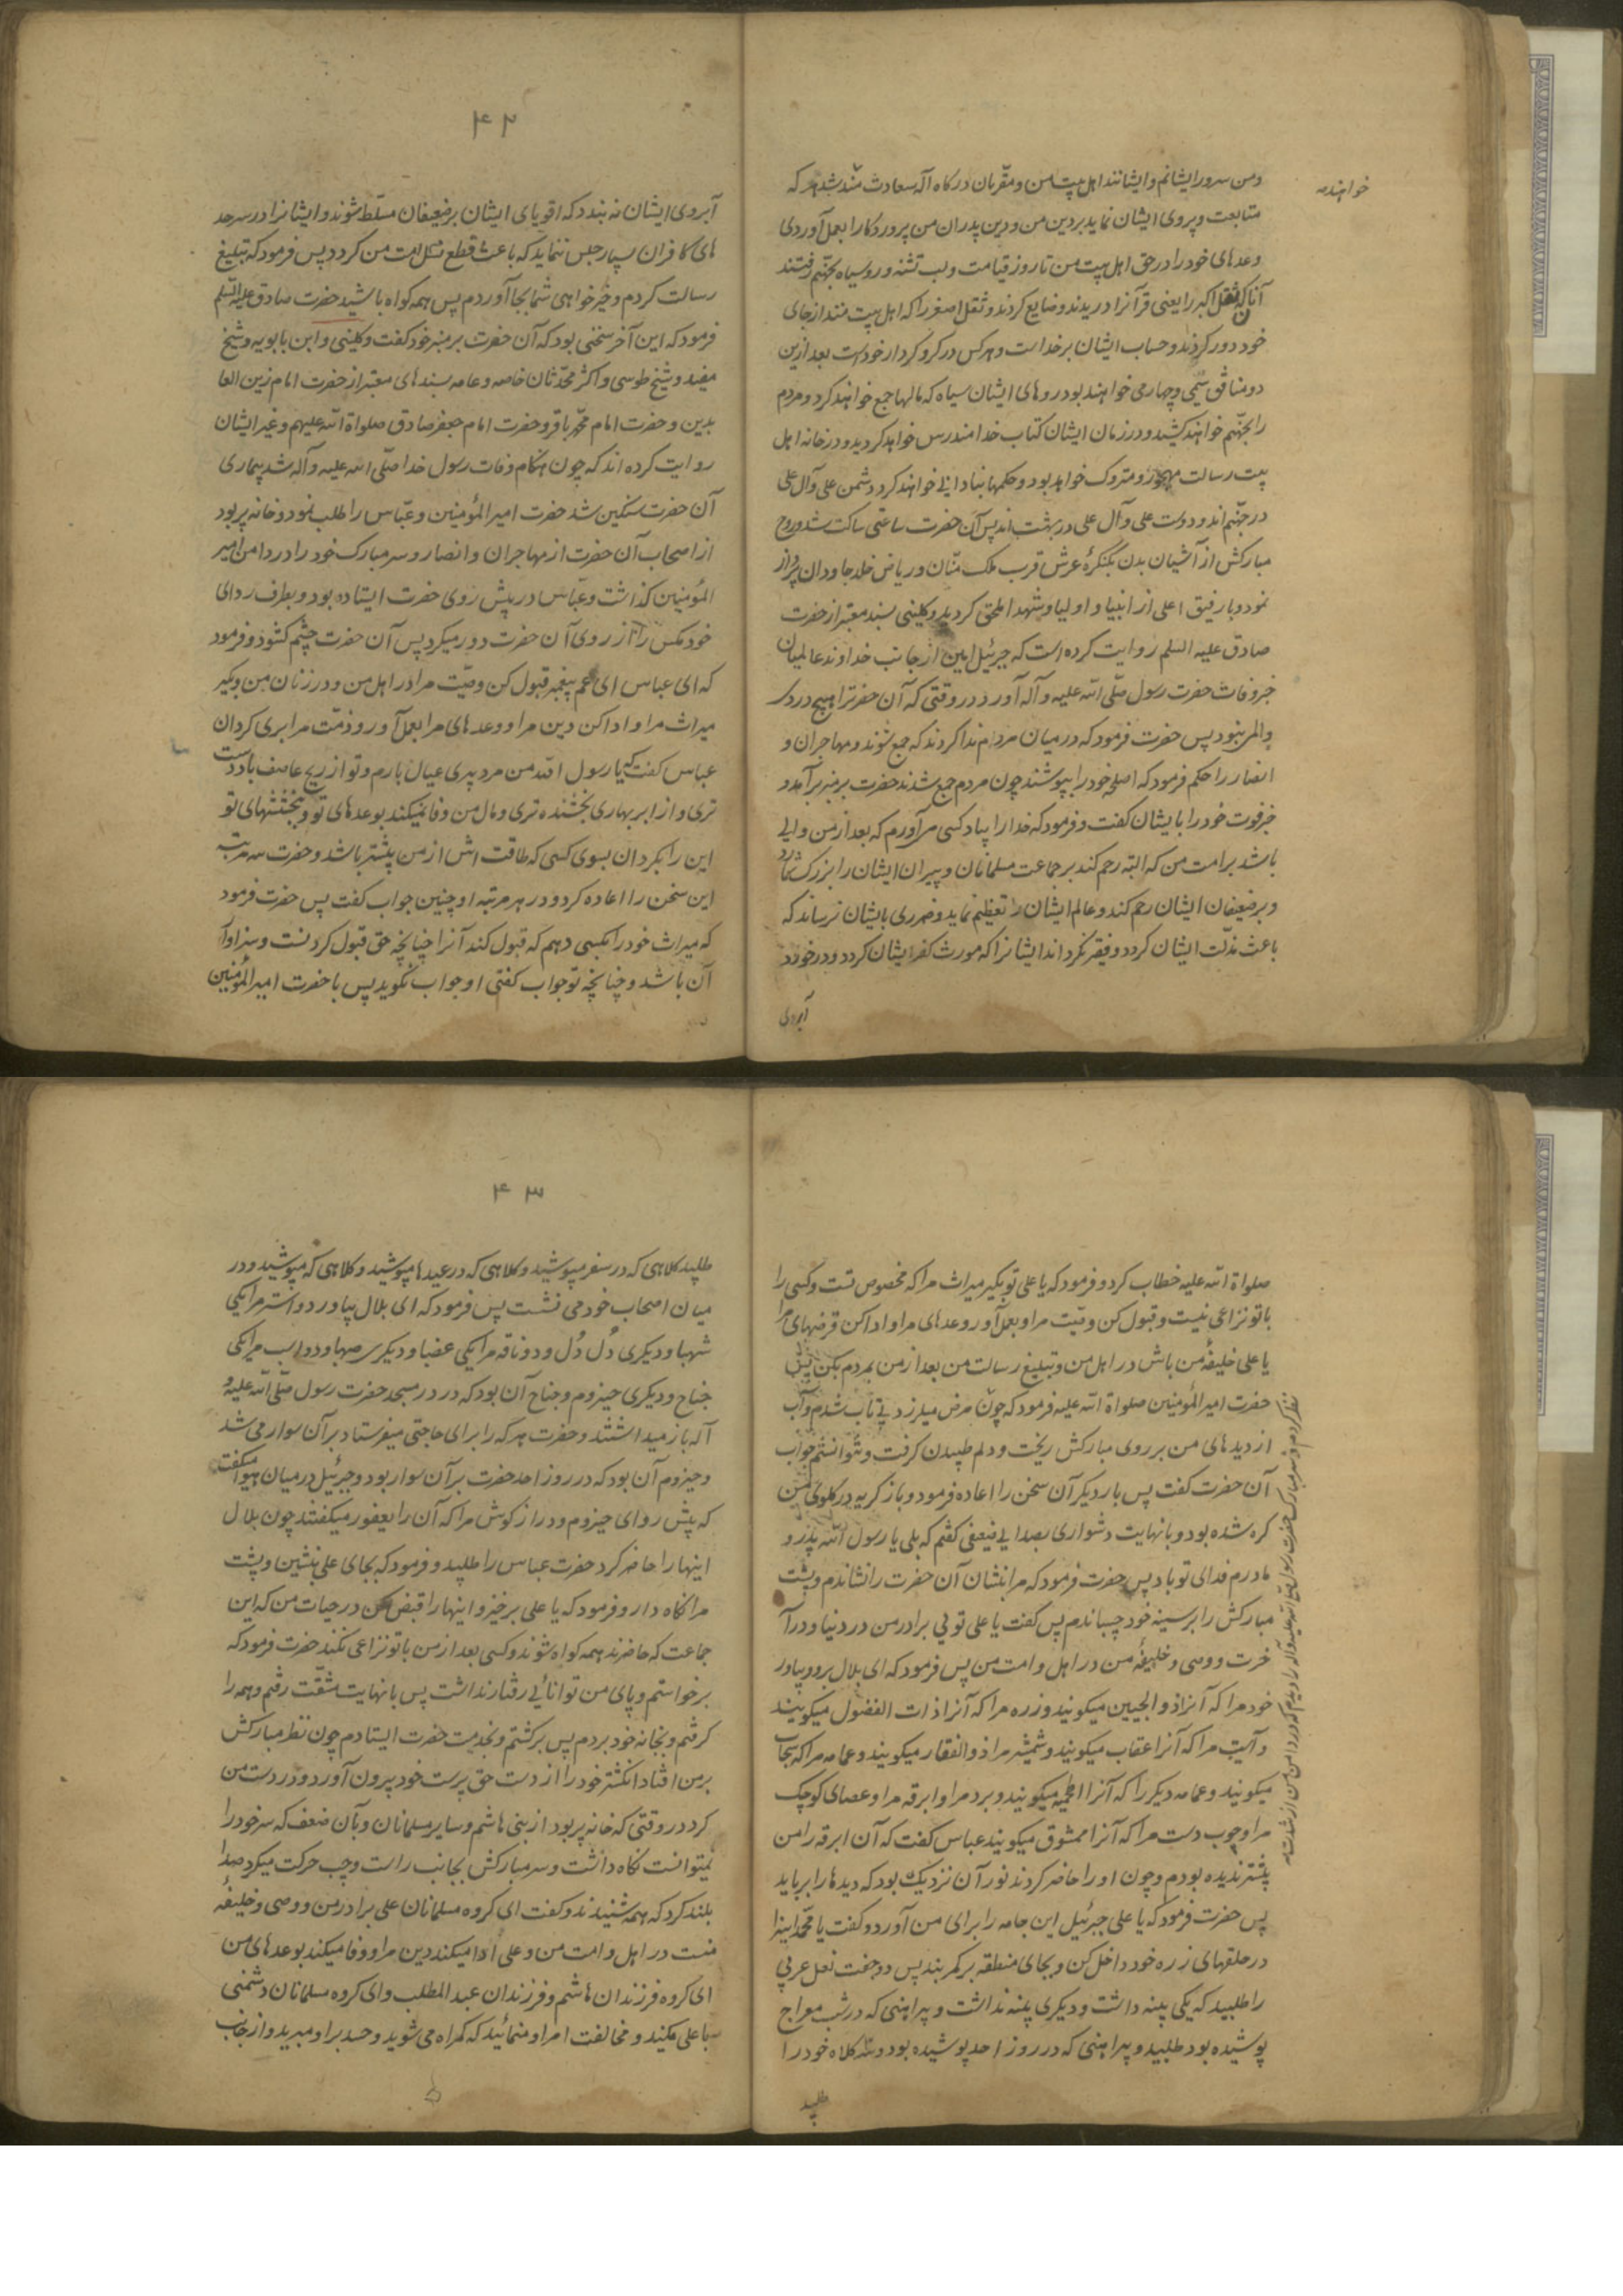 خواهند مه
ومن سرور ایشانم وایشانند اهل بیت من ومقربان درگاه آله سعادت مند شد هر که
متابعت وپیروی ایشان نماید بردین من ودین پدران من پروردگارا بعمل آوردی
وعدهای خود را در حق اهل بیت من تا روز قیامت ولب تشنه وروسیاه بجهنم رفتند
آنان که ثقل اکبر را یعنی قرآنرا دریدند وضایع کردند وثقل اصغر را که اهل بیت منند از جای
خود دور کردند وحساب ایشان بر خداست وهر کس در گرو کردار خود است بعد ازین
دو منافق سیمی وچهارمی خواهند بود روهای ایشان سیاه که مالها جمع خواهند کرد ومردم
را بجهنم خواهند کشید ودر زمان ایشان کتاب خدا مندرس خواهد گردید ودر خانه اهل
بیت رسالت مهجور ومتروک خواهد بود وحکمها بنادانی خواهند کرد دشمن علی وآل علی
در جهنم اند ودوست علی وآل علی در بهشت اند پس آن حضرت ساعتی ساکت شد وروح
مبارکش از آشیان بدن بکنگرهٔ عرش قرب ملک منان وریاض خلد جاودان پرواز
نمود وبا رفیق اعلی از انبیا واولیا وشهدا ملحق گردید وکلینی بسند معتبر از حضرت
صادق علیه السلم روایت کرده است که جبرئیل امین از جانب خداوند عالمیان
خبر وفات حضرت رسول صلّی الله علیه وآله آورد در وقتی که آن حضرترا هیچ درد
والم نبود پس حضرت فرمود که در میان مردم ندا کردند که جمع شوند ومهاجران و
انصار را حکم فرمود که اسلحه خود را بپوشند چون مردم جمع شدند حضرت بر منبر برآمد و
خبر فوت خود را بایشان گفت وفرمود که خدا را بیاد کسی می آورم که بعد از من والی
باشد بر امت من که البته رحم کند بر جماعت مسلمانان وپیران ایشان را بزرگ شمارد
وبر ضعیفان ایشان رحم کند وعالم ایشان را تعظیم نماید وضرری بایشان نرساند که
باعث مذلّت ایشان گردد وفقیر نگرداند ایشانرا که مورث کفر ایشان گردد ودر خود
آبروی
۴۲
آبروی ایشان نه بندد که اقویای ایشان بر ضعیفان مسلّط شوند وایشانرا در سرحد
های کافران بسیار حبس ننماید که باعث قطع نسل امت من گردد پس فرمود که تبلیغ
رسالت کردم وخیر خواهی شما بجا آوردم پس همه گواه باشید حضرت صادق علیه السلم
فرمود که این آخر سخنی بود که آن حضرت بر منبر خود گفت وکلینی وابن بابویه وشیخ
مفید وشیخ طوسی واکثر محدّثان خاصه وعامه بسندهای معتبر از حضرت امام زین العا
بدین وحضرت امام محمّد باقر وحضرت امام جعفر صادق صلواة الله علیهم وغیر ایشان
روایت کرده اند که چون هنگام وفات رسول خدا صلّی الله علیه وآله شد بیماری
آن حضرت سنگین شد حضرت امیر المؤمنین وعبّاس را طلب نمود وخانه پر بود
از اصحاب آن حضرت از مهاجران وانصار وسر مبارک خود را در دامن امیر
المؤمنین گذاشت وعبّاس در پیش روی حضرت ایستاده بود وبطرف ردای
خود مگس را از روی آن حضرت دور میکرد پس آن حضرت چشم گشود وفرمود
که ای عباس ای عم پیغمبر قبول کن وصیّت مرا در اهل من ودر زنان من وبگیر
میراث مرا وادا کن دین مرا ووعدهای مرا بعمل آور وذمّت مرا بری گردان
عباس گفت که یا رسول الله من مرد پیری عیال بارم وتو از ریح عاصف با دست
تری واز ابر بهاری بخشنده تری ومال من وفا نمیکند بوعدهای تو وبخششهای تو
این را بگردان بسوی کسی که طاقت اش از من بیشتر باشد وحضرت سه مرتبه
این سخن را اعاده کرد ودر هر مرتبه او چنین جواب گفت پس حضرت فرمود
که میراث خود را بکسی دهم که قبول کند آنرا چنانچه حق قبول کردنست وسزاوار
آن باشد وچنانچه تو جواب گفتی او جواب نگوید پس با حضرت امیر المؤمنین
صلواة الله علیه خطاب کرد وفرمود که یا علی تو بگیر میراث مرا که مخصوص تست وکسی را
با تو نزاعی نیست وقبول کن وصیّت مرا وبعمل آور وعدهای مرا وادا کن قرضهای مرا
یا علی خلیفهٔ من باش در اهل من وتبلیغ رسالت من بعد از من بمردم بکن پس
حضرت امیر المؤمنین صلواة الله علیه فرمود که چون مرض میلرزد بی تاب شدم وآب
از دیدهای من بر روی مبارکش ریخت ودلم طپیدن گرفت ونتوانستم جواب
آن حضرت گفت پس بار دیگر آن سخن را اعاده فرمود وباز گریه در گلوی من
گره شده بود وبا نهایت دشواری بصدایی ضعیفی گفتم که بلی یا رسول الله پدر و
مادرم فدای تو باد پس حضرت فرمود که مرا بنشان آن حضرت را نشاندم وپشت
مبارکش را بر سینه خود چسباندم پس گفت یا علی تویی برادر من در دنیا ودر آ
خرت ووصی وخلیفهٔ من در اهل وامت من پس فرمود که ای بلال برو وبیاور
خود مرا که آنرا ذو الجبین میگویند وزره مرا که آنرا ذات الفضول میگویند
ورآیت مرا که آنرا عقاب میگویند وشمشیر مرا ذو الفقار میگویند وعمامه مرا که سحاب
میگویند وعمامه دیگر را که آنرا میگویند وبرد مرا وابرقه مرا وعصای کوچک
مرا وچوب دست مرا که آنرا ممشوق میگویند عباس گفت که آن ابرقه را من
پیشتر ندیده بودم وچون او را حاضر کردند نور آن نزدیک بود که دیدها را برباید
پس حضرت فرمود که یا علی جبرئیل این جامه را برای من آورد وگفت یا محمّد اینرا
در حلقهای زره خود داخل کن وبجای منطقه بر کمر بند پس دو جفت نعل عربی
را طلبید که یکی پینه داشت ودیگری پینه نداشت وپیراهنی که در شب معراج
پوشیده بود طلبید وپیراهنی که در روز احد پوشیده بود وسه کلاه خود را
طلبید
نظر کردم وسر مبارک حضرت رسول صلی الله علیه وآله را دیدم که در دامن من از شدت
۴۳
طلبید کلاهی که در سفر میپوشید وکلاهی که در عیدها میپوشید وکلاهی که میپوشید ودر
میان اصحاب خود می نشست پس فرمود که ای بلال بیاور دو استر مرا یکی
شهبا ودیگری دُل دُل ودو ناقه مرا یکی عضبا ودیگری صهبا ودو اسب مرا یکی
جناح ودیگری حیزوم وجناح آن بود که در در مسجد حضرت رسول صلّی الله علیه و
آله باز میداشتند وحضرت هر که را برای حاجتی میفرستاد بر آن سوار می شد
وحیزوم آن بود که در روز احد حضرت بر آن سوار بود وجبرئیل در میان هوا میگفت
که پیش رو ای حیزوم ودراز گوش مرا که آن را یعفور میگفتند چون بلال
اینها را حاضر کرد حضرت عباس را طلبید وفرمود که بجای علی بنشین وپشت
مرا نگاه دار وفرمود که یا علی برخیز واینها را قبض کن در حیات من که این
جماعت که حاضرند همه گواه شوند وکسی بعد از من با تو نزاعی نکند حضرت فرمود که
برخواستم وپای من توانائی رفتار نداشت پس با نهایت مشقّت رفتم وهمه را
گرفتم وبخانه خود بردم پس برگشتم وبخدمت حضرت ایستادم چون نظر مبارکش
بر من افتاد انگشتر خود را از دست حق پرست خود بیرون آورد ودر دست من
کرد در وقتی که خانه پر بود از بنی هاشم وسایر مسلمانان وبآن ضعف که سر خود را
نمیتوانست نگاه داشت وسر مبارکش بجانب راست وچپ حرکت میکرد صدا
بلند کرد که همه شنیدند وگفت ای گروه مسلمانان علی برادر من ووصی وخلیفهٔ
منست در اهل وامت من وعلی ادا میکند دین مرا ووفا میکند بوعدهای من
ای گروه فرزندان هاشم وفرزندان عبد المطلب وای گروه مسلمانان دشمنی
با علی مکنید ومخالفت امر او منمائید که گمراه می شوید وحسد بر او مبرید واز جانب